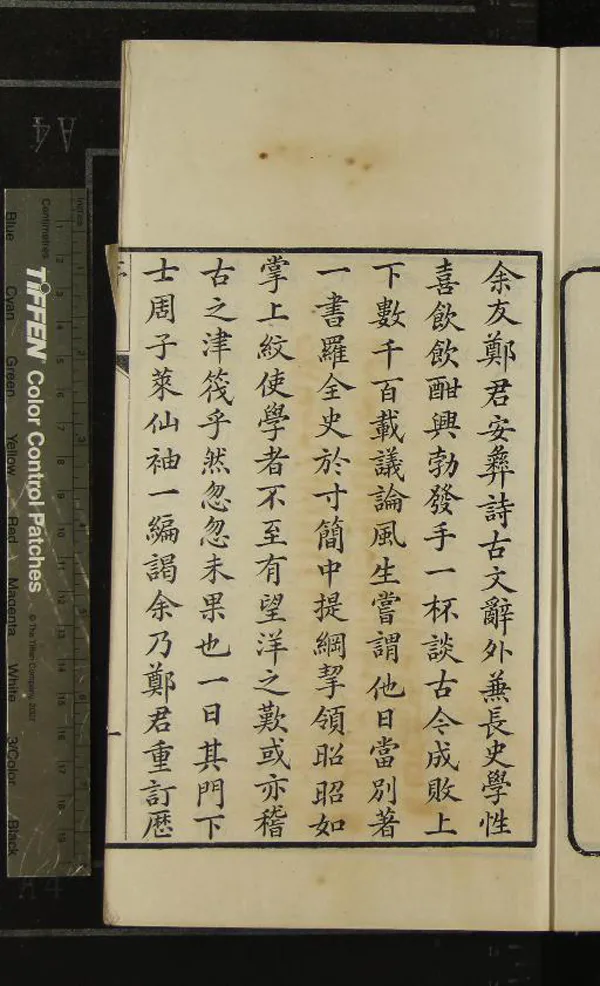 余友鄭君安彝詩古文辭外兼長史學性
喜飲飲酣興勃發手一杯談古今成敗上
下數千百載議論風生嘗謂他日當別著
一書羅全史於寸簡中提綱挈領昭昭如
掌上紋使學者不至有望洋之歎或亦稽
古之津筏乎然忽忽未果也一日其門下
士周子萊仙袖一編謁余乃鄭君重訂歷
一
A4
A4
Inches
Centimetres
TIFFEN Color Control Patches
© The Tiffen Company, 2007
Blue
Cyan
Green
Yellow
Red
Magenta
White
3/Color
Black